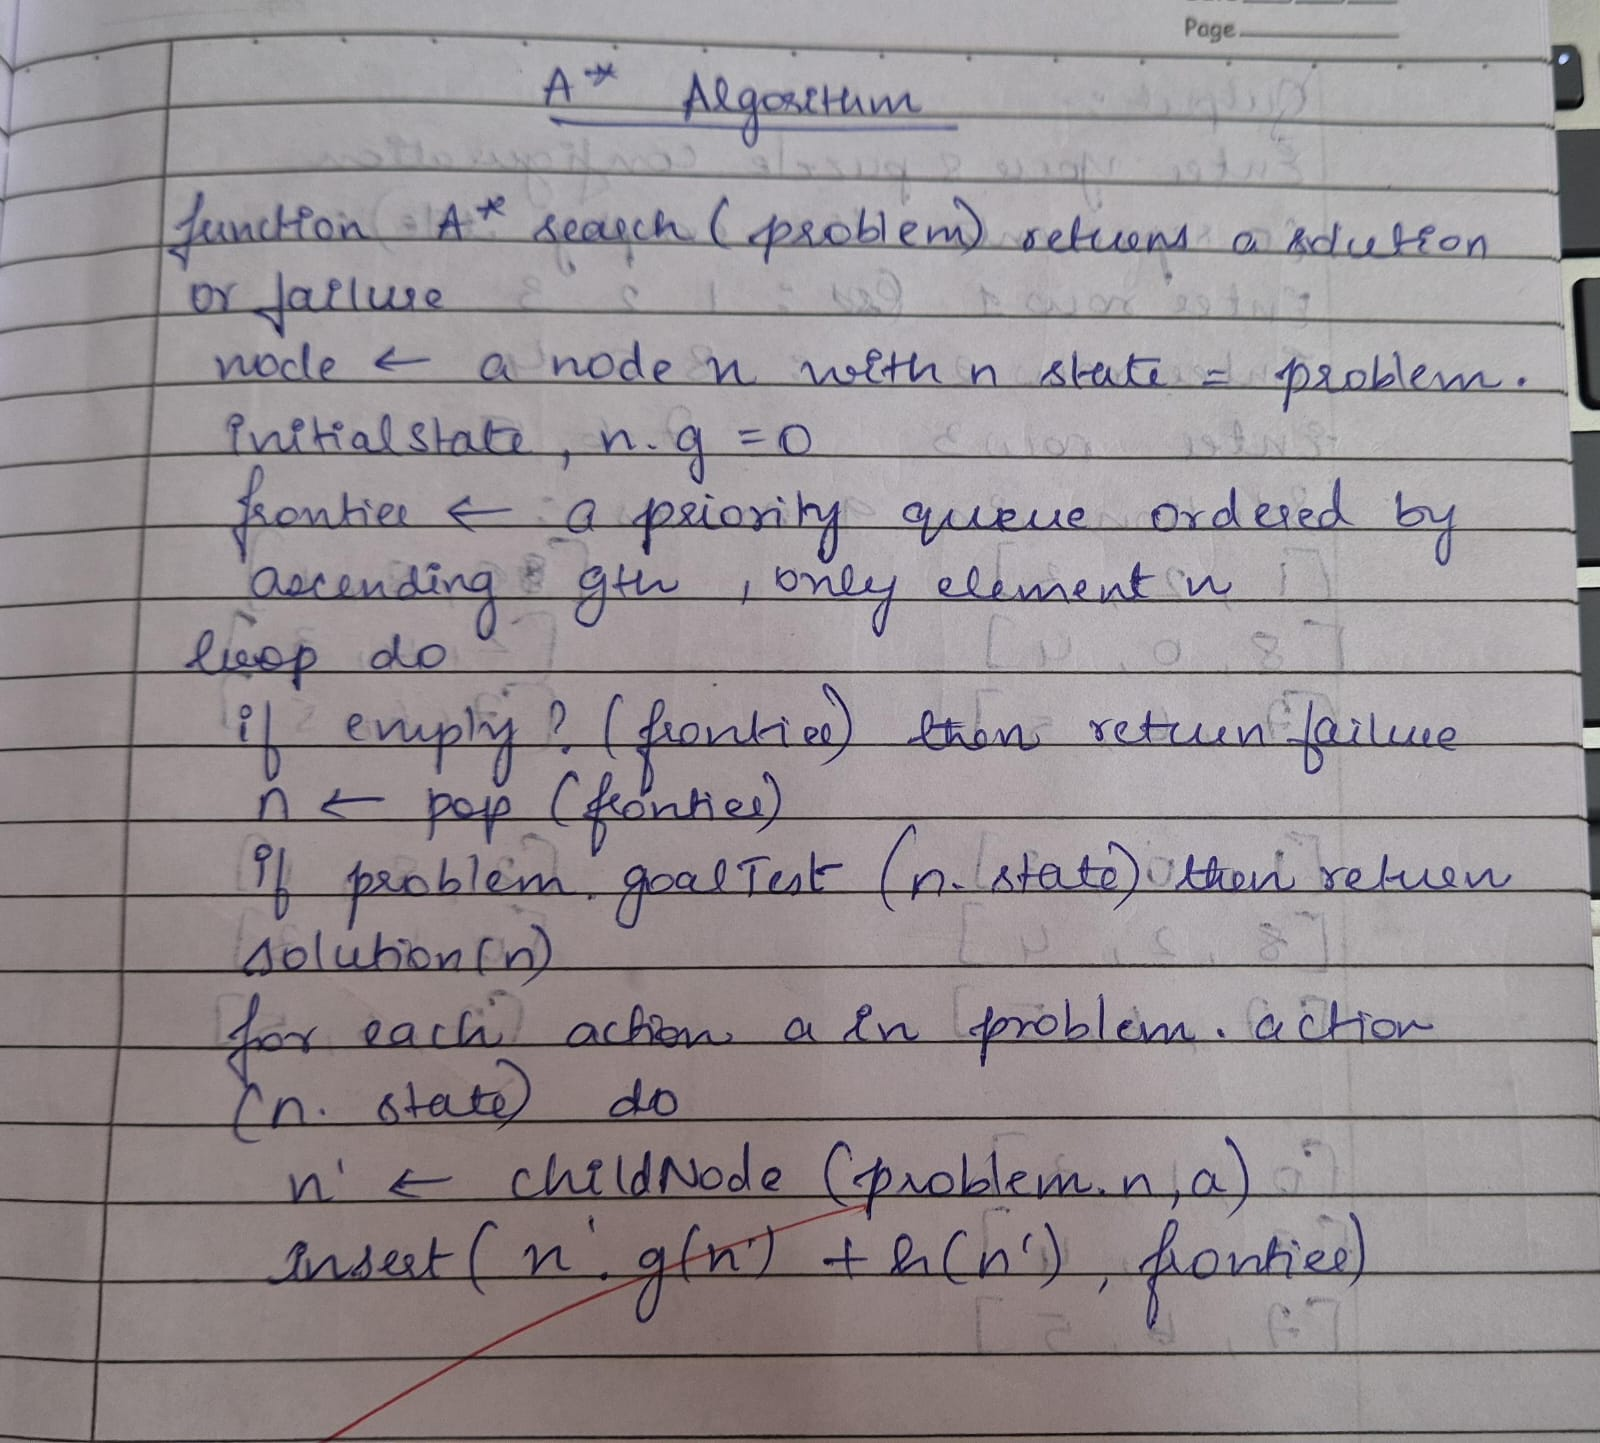 Page
A* Algorithm
function A* search (problem) returns a solution
or failure
node ← a node n with n state = problem.
initialstate, n. g = 0
frontier ← a priority queue ordered by
ascending g+h, only element n
loop do
if empty? (frontier) then return failure
n ← pop (frontier)
if problem. goalTest (n. state) then return
solution(n)
for each action a in problem. action
(n. state) do
n' ← childNode (problem. n, a)
insert (n'. g(n') + h(n'), frontier)